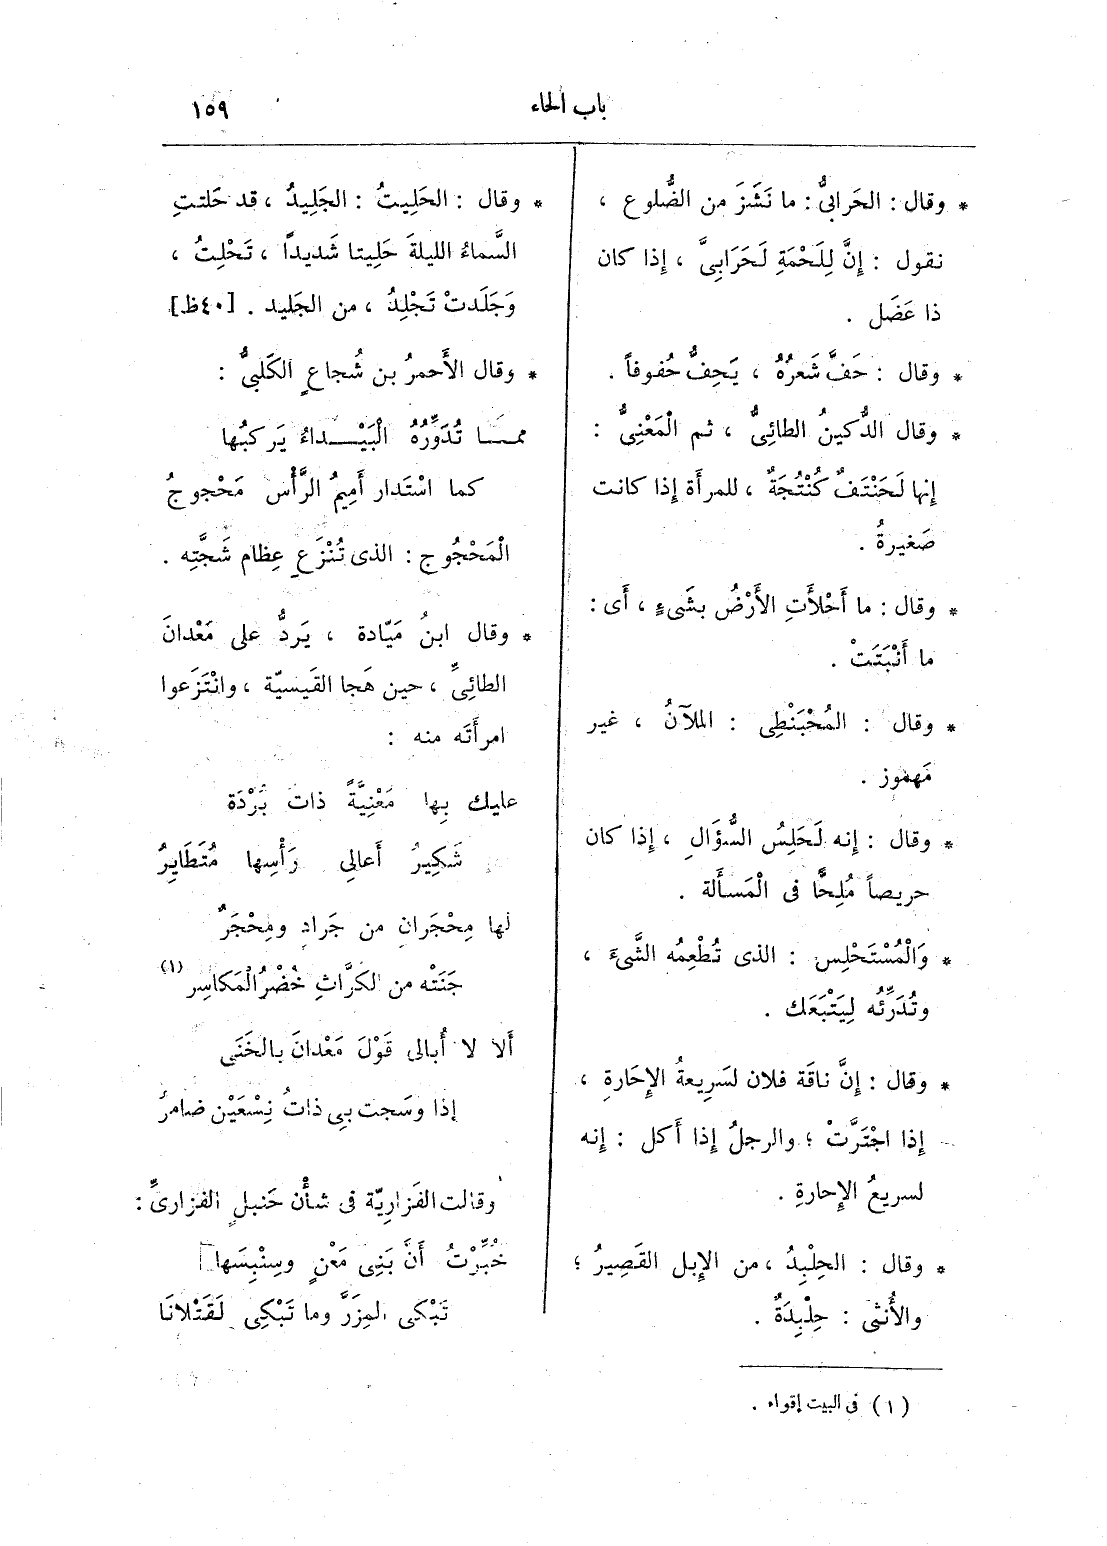 باب الحاء
١٥٩
* وقال : الحَرابىُّ : ما نَشَزَ من الضُّلوع ،
نقول : إنَّ لِلَحْمَةِ لَحَرَابىَّ ، إذا كان
ذا عَضَل .
* وقال : حَفَّ شَعرُهُ ، يَحِفُّ حُفوفاً .
* وقال الدُّكينُ الطائِىُّ ، ثم الْمَعْنِىُّ :
إنها لَحَنْتَفٌ كُنْتُجَةٌ ، للمرأة إذا كانت
صَغيرةُ .
* وقال : ما أَحْلأَتِ الأَرْضُ بشَىءٍ ، أَى :
ما أَنْبَتَتْ .
* وقال : المُحْبَنْطِى : الملآنُ ، غير
مَهموز .
* وقال : إنه لَحَلِسُ السُّؤَالِ ، إذا كان
حريصاً مُلِحًّا فى الْمَسأَلة .
* وَالْمُسْتَحْلِس : الذى تُطْعِمُه الشَّىءَ ،
وتُدَرِّئُه لِيَتْبَعَك .
* وقال : إنَّ ناقَة فلان لسَرِيعةُ الإِحَارةِ ،
إذا اجْتَرَّتْ ؛ والرجلُ إذا أَكل : إنه
لسريعُ الإِحارةِ .
* وقال : الحِلْبِدُ ، من الإِبل القَصِيرُ ؛
والأُنثى : حِلْبِدَةٌ .
(١) فى البيت إقواء .
* وقال : الحَلِيتُ : الجَلِيدُ ، قد حَلتتِ
السَّماءُ الليلةَ حَلِيتا شَديداً ، تَحْلِتُ ،
وَجَلَدتْ تَجْلِدُ ، من الجَليد . [٤٠ظ]
* وقال الأَحمرُ بن شُجاعٍ الكَلبىُّ :
ممـــا تُدَوِّرُهُ الْبَيْــــداءُ يَركبُها
كما اسْتَدار أَمِيمُ الرَّأْس مَحْجوجُ
الْمَحْجُوج : الذى تُنْزَع عِظام شَجَّتِه .
* وقال ابنُ مَيّادة ، يَردُّ على مَعْدانَ
الطائِىِّ ، حين هَجا القَيسيّة ، وانْتَزَعوا
امرأَتَه منه :
عليك بِها مَعْنِيَّةً ذات بُرْدَة
شَكِيرُ أَعالِى رَأْسِها مُتَطَايِرُ
لها مِحْجَرانِ من جَرادٍ ومِحْجَرٌ
جَنَتْه من الكَرَّاثِ خُضْرُ الْمَكاسِر (١)
أَلا لا أُبالى قَوْلَ مَعْدانَ بالخَنَى
إذا وسَجت بى ذاتُ نِسْعَيْن ضامرُ
وقالت الفَزاريّة فى شأْن حَنبلٍ الفزارىِّ :
خُبِّرْتُ أَنَّ بَنِى مَعْنٍ وسِنْبِسَها
تَبْكى المِزَرَّ وما تَبْكِى لَقَتْلانَا